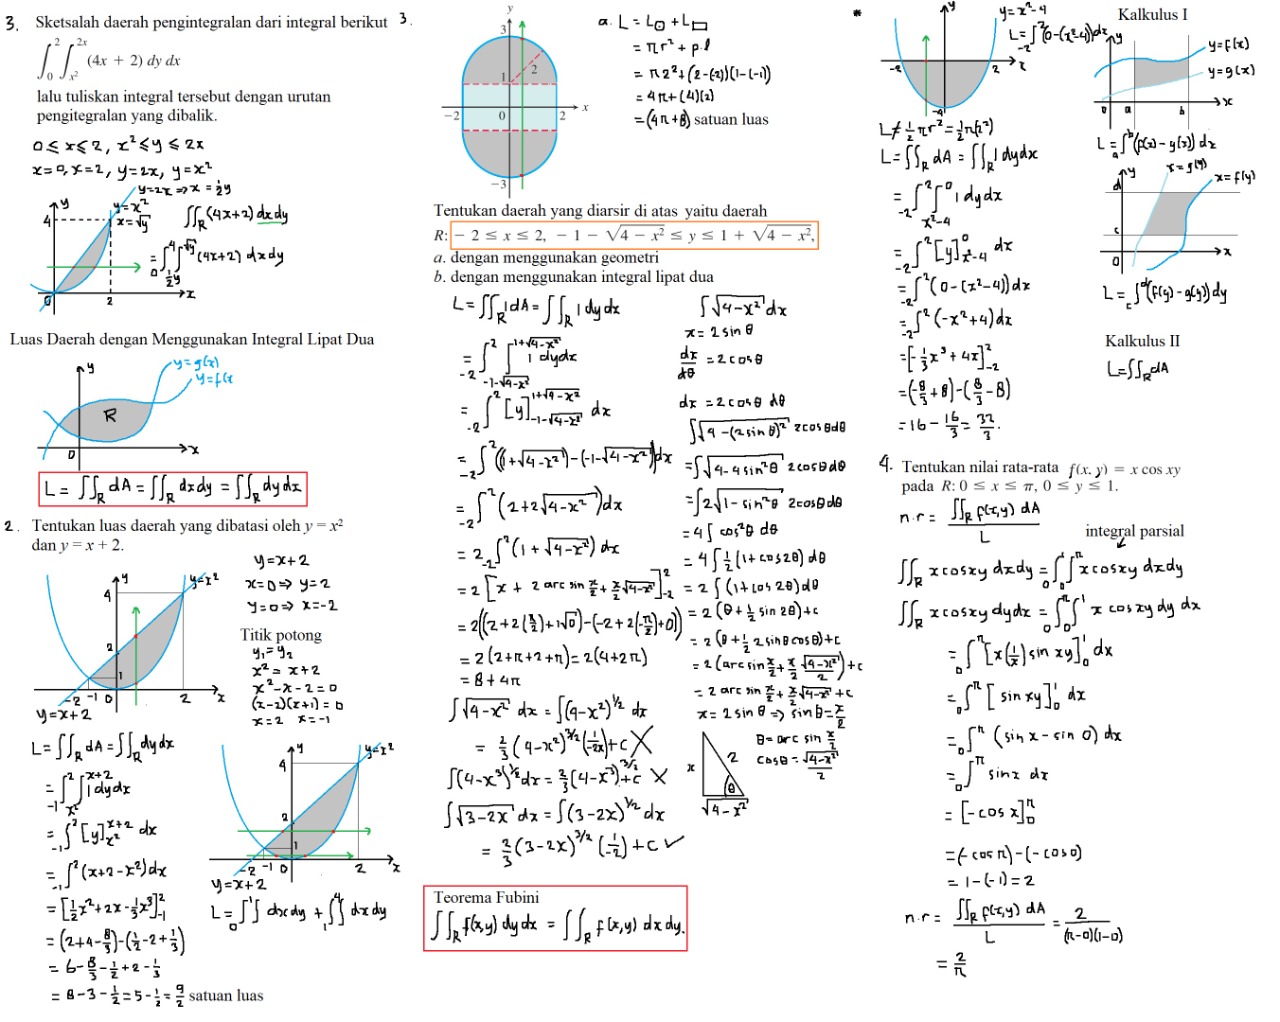 3. Sketsalah daerah pengintegralan dari integral berikut
∫₀² ∫_{x²}^{2x} (4x + 2) dy dx
lalu tuliskan integral tersebut dengan urutan
pengitegralan yang dibalik.
0 ≤ x ≤ 2, x² ≤ y ≤ 2x
x = 0, x = 2, y = 2x, y = x²
y = 2x ⇒ x = ½y
y = x²
x = √y
∫∫_R (4x+2) dx dy
= ∫₀⁴ ∫_{½y}^{√y} (4x+2) dx dy
y
4
0
2
x
Luas Daerah dengan Menggunakan Integral Lipat Dua
y
y = g(x)
y = f(x
R
0
x
L = ∫∫_R dA = ∫∫_R dx dy = ∫∫_R dy dx
2. Tentukan luas daerah yang dibatasi oleh y = x²
dan y = x + 2.
y = x+2
x = 0 ⇒ y = 2
y = 0 ⇒ x = -2
Titik potong
y₁ = y₂
x² = x+2
x² - x - 2 = 0
(x-2)(x+1) = 0
x = 2 x = -1
y
y = x²
4
2
1
-2 -1 0 2 x
y = x+2
L = ∫∫_R dA = ∫∫_R dy dx
= ∫₋₁² ∫_{x²}^{x+2} 1 dy dx
= ∫₋₁² [y]_{x²}^{x+2} dx
= ∫₋₁² (x+2-x²) dx
= [½x² + 2x - ⅓x³]₋₁²
= (2+4-8/3) - (½-2+⅓)
= 6 - 8/3 - ½ + 2 - ⅓
= 8 - 3 - ½ = 5 - ½ = 9/2 satuan luas
y
y = x²
4
2
1
-2 -1 0 2 x
y = x+2
L = ∫₀¹∫ dx dy + ∫₁⁴∫ dx dy
3.
y
3
1
2
-2 0 2 x
-3
a. L = L○ + L□
= πr² + p.l
= π2² + (2-(-2))(1-(-1))
= 4π + (4)(2)
= (4π+8) satuan luas
Tentukan daerah yang diarsir di atas yaitu daerah
R: - 2 ≤ x ≤ 2, - 1 - √(4 - x²) ≤ y ≤ 1 + √(4 - x²),
a. dengan menggunakan geometri
b. dengan menggunakan integral lipat dua
L = ∫∫_R 1 dA = ∫∫_R 1 dy dx
= ∫₋₂² ∫_{-1-√(4-x²)}^{1+√(4-x²)} 1 dy dx
= ∫₋₂² [y]_{-1-√(4-x²)}^{1+√(4-x²)} dx
= ∫₋₂² ((1+√(4-x²)) - (-1-√(4-x²))) dx
= ∫₋₂² (2+2√(4-x²)) dx
= 2 ∫₋₂² (1+√(4-x²)) dx
= 2 [x + 2 arc sin x/2 + x/2 √(4-x²)]₋₂²
= 2((2+2(π/2)+1√0) - (-2+2(-π/2)+0))
= 2(2+π+2+π) = 2(4+2π)
= 8 + 4π
∫√(4-x²) dx = ∫(4-x²)^½ dx
= ⅔ (4-x²)^{3/2} (1/-2x) + c X
∫(4-x³)^½ dx = ⅔ (4-x³)^{3/2} + c X
∫√(3-2x) dx = ∫(3-2x)^{1/2} dx
= ⅔ (3-2x)^{3/2} (1/-2) + c ✓
Teorema Fubini
∫∫_R f(x,y) dy dx = ∫∫_R f(x,y) dx dy.
∫√(4-x²) dx
x = 2 sin θ
dx/dθ = 2 cos θ
dx = 2 cos θ dθ
∫√(4-(2 sin θ)²) 2 cos θ dθ
= ∫√(4-4 sin²θ) 2 cos θ dθ
= ∫2√(1-sin²θ) 2 cos θ dθ
= 4 ∫ cos²θ dθ
= 4 ∫ ½(1+cos 2θ) dθ
= 2 ∫ (1+cos 2θ) dθ
= 2 (θ + ½ sin 2θ) + c
= 2 (θ + ½ 2 sin θ cos θ) + c
= 2 (arc sin x/2 + x/2 √(4-x²)/2) + c
= 2 arc sin x/2 + x/2 √(4-x²) + c
x = 2 sin θ ⇒ sin θ = x/2
θ = arc sin x/2
cos θ = √(4-x²)/2
x
2
θ
√(4-x²)
*
y
y = x²-4
L = ∫₋₂² (0-(x²-4)) dx
-2 2 x
-4
L ≠ ½πr² = ½π(2²)
L = ∫∫_R dA = ∫∫_R 1 dy dx
= ∫₋₂² ∫_{x²-4}^0 1 dy dx
= ∫₋₂² [y]_{x²-4}^0 dx
= ∫₋₂² (0-(x²-4)) dx
= ∫₋₂² (-x²+4) dx
= [-⅓x³ + 4x]₋₂²
= (-8/3+8) - (8/3-8)
= 16 - 16/3 = 32/3.
Kalkulus I
y
y = f(x)
y = g(x)
0 a b x
L = ∫ₐᵇ (f(x) - g(x)) dx
y
x = g(y)
x = f(y)
d
c
0
x
L = ∫_c^d (f(y) - g(y)) dy
Kalkulus II
L = ∫∫_R dA
4. Tentukan nilai rata-rata f(x, y) = x cos xy
pada R: 0 ≤ x ≤ π, 0 ≤ y ≤ 1.
n.r = ∫∫_R f(x,y) dA / L
integral parsial
∫∫_R x cos xy dx dy = ∫₀¹ ∫₀^π x cos xy dx dy
∫∫_R x cos xy dy dx = ∫₀^π ∫₀¹ x cos xy dy dx
= ∫₀^π [x(1/x) sin xy]₀¹ dx
= ∫₀^π [sin xy]₀¹ dx
= ∫₀^π (sin x - sin 0) dx
= ∫₀^π sin x dx
= [-cos x]₀^π
= (-cos π) - (-cos 0)
= 1 - (-1) = 2
n.r = ∫∫_R f(x,y) dA / L = 2 / (π-0)(1-0)
= 2/π